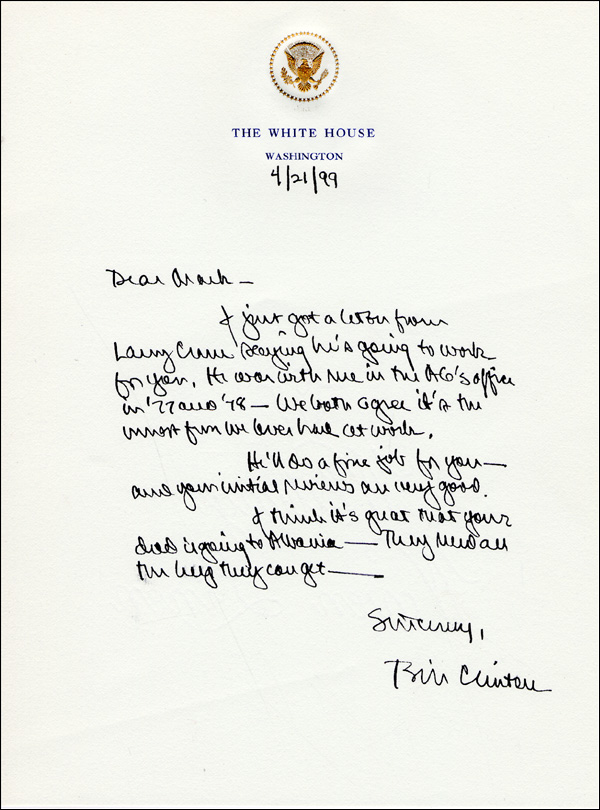 THE WHITE HOUSE
WASHINGTON
4/21/99
Dear Mark —
I just got a letter from
Larry Crane saying he's going to work
for you. He was with me in the AG's office
in '77 and '78 — We both agree it's the
most fun we ever had at work.
He'll do a fine job for you —
and your initial reviews are very good.
I think it's great that your
dad is going to Albania — They need all
the help they can get —
Sincerely,
Bill Clinton